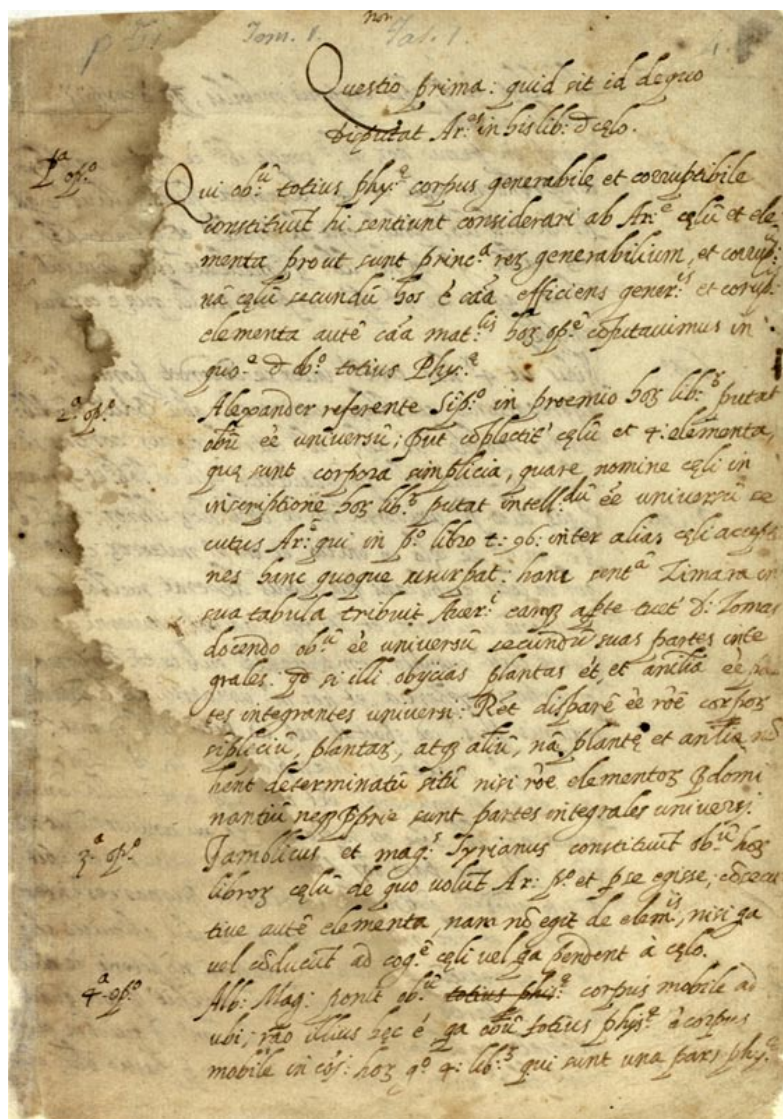 non
Tom. 1. Tat. 1.
Questio prima: quid sit id de quo
disputat Ar:es in his lib: d cęlo.
1a op:o
Qui ob:ū totius phy:ę corpus generabile et corruptibile
constituūt hi sentiunt considerari ab Ar:e cęlū et ele-
menta prout sunt princ:a reꝝ generabilium, et corrup:
nā cęlū secundū hos ē cāa efficiens gener:is et corrup:
elementa autē cāa mat:lis hoꝝ op:ē cōputavimus in
quo:e d ob:o totius Phy:ę
2a op:o
Alexander referente Sip:o in proemio hoꝝ lib:s putat
obū ēe universū; put cōplectit' cęlū et 4: elementa,
quę sunt corpora simplicia, quare nomine cęli in
inscriptione hoꝝ lib:s putat intell:dū ēe universū se
cutus Ar: qui in p:o libro t: 96: inter alias cęli accep
nes hanc quoque usurpat: hanc sent:ā Zimara in
sua tabula tribuit Aver:i eamqꝫ apte tuet' d: Tomas
docendo ob:ū ēe universū secundū suas partes inte
grales. qđ si illi obijcias plantas ēt, et anīlia ēe par
tes integrantes universi: Rēt disparē ēe rōē corpoꝝ
sīpliciū, plantaꝝ, atqꝫ alīū, nā plantę et anīlia nō
hent determinatū sitū nisi rōe elementoꝝ p̄domi
nantiū neqꝫ ꝓprie sunt partes integrales universi.
3a op:o
Jamblicus et mag:s Tyrianus constituūt ob:ū hoꝝ
libroꝝ cęlū de quo volūt Ar: p:o et p se egisse, cōsecu
tive autē elementa, nam nō egit de elem:is, nisi qa
vel cōducūt ad cog:ē cęli vel qa pēdent à cęlo.
4a op:o
Alb: Mag: ponit ob:ū totius phis:ę corpus mobile ad
ubi; rāo illius hęc ē qa obū totius phys:ę ē corpus
mobile in cōi: hoꝝ q:o 4: lib:s qui sunt una pars phy:ę